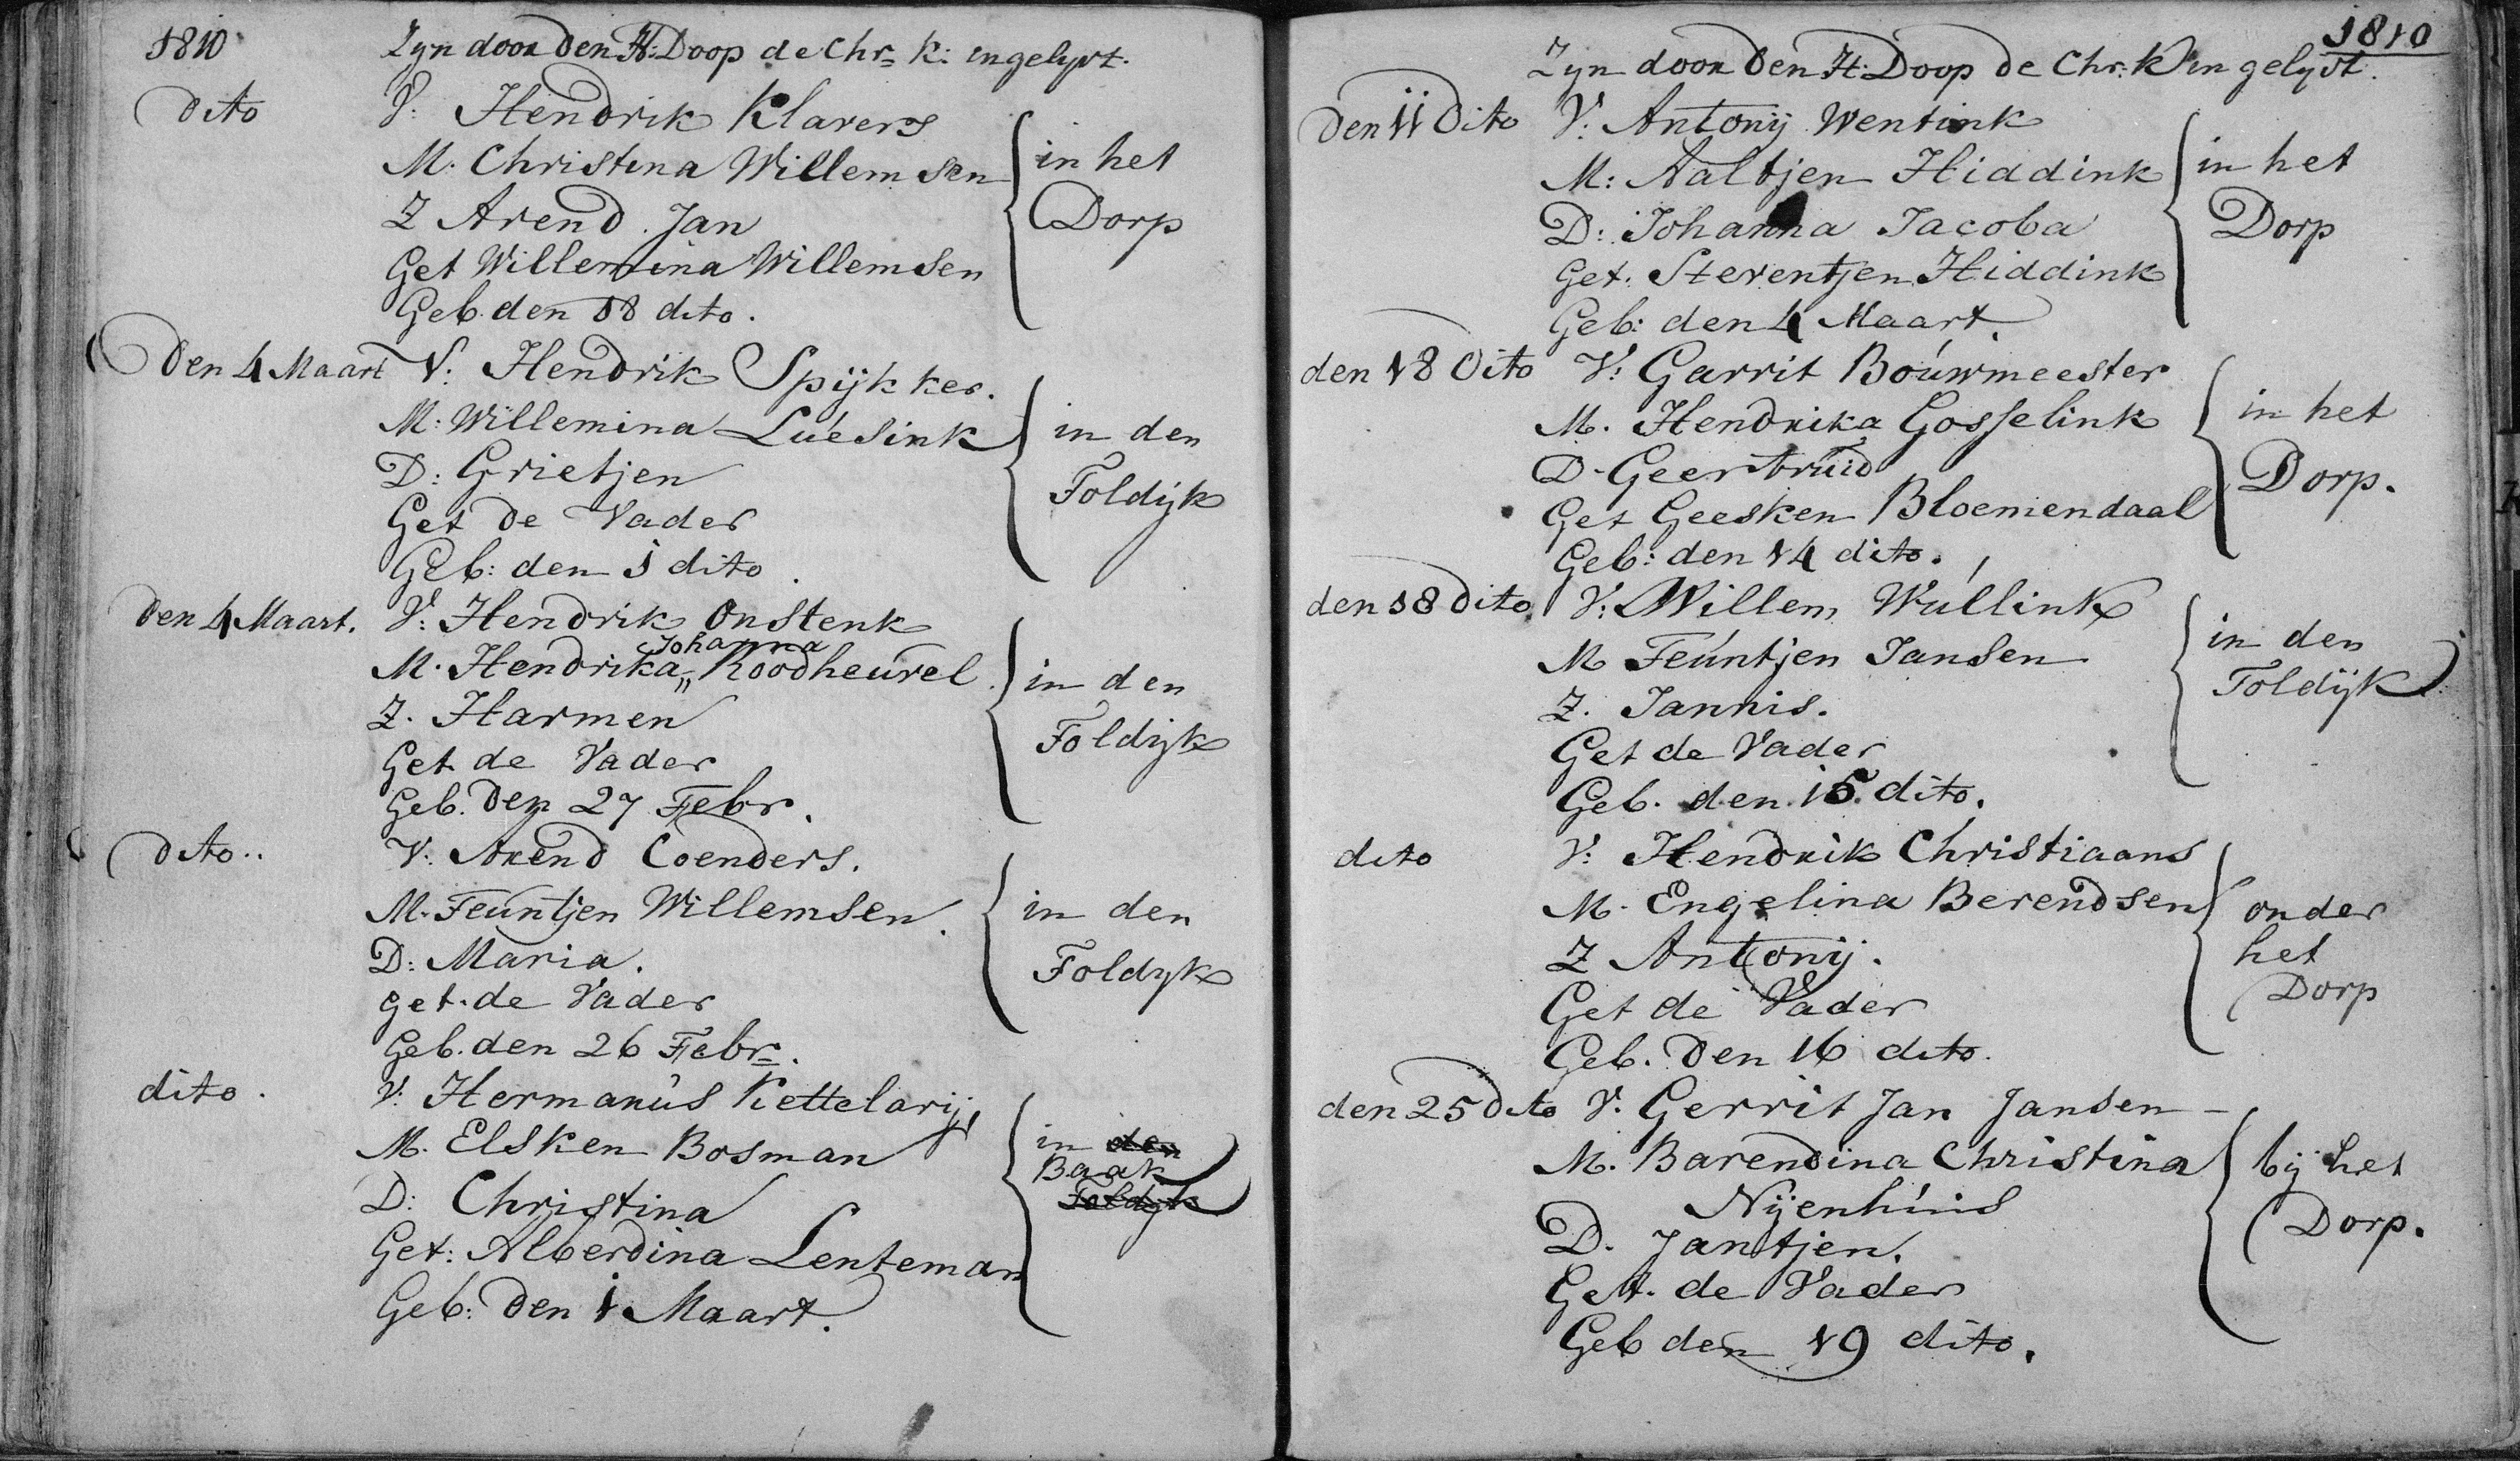 1810 Zyn door den H: Doop de Chr= K: ingelyvt.
dito V: Hendrik Klavers
M: Christina Willemsen
Z Arend Jan
Get Willemina Willemsen
Geb. den 18 dito.
in het
Dorp
Den 4 Maart V: Hendrik Spijkker.
M: Willemina Luésink
D: Grietjen
Get de Vader
Geb: den 1 dito
in den
Toldijk
Den 4 Maart. V: Hendrik Onstenk
Johanna
M. Hendrika,, Roodheuvel
Z. Harmen
Get de Vader
Geb. Den 27 Febr.
in den
Toldijk
dito.. V: Arend Coenders.
M. Teuntjen Willemsen.
D: Maria.
get. de Vader
Geb. den 26 Febr=.
in den
Toldyk
dito. V: Hermanus Kettelarij,
M. Elsken Bosman
D: Christina
Get: Alberdina Lenteman
Geb: Den 1 Maart.
in den
Baak
Toldyk
1810
Zyn door Den H: Doop de Chr: K in gelyvt.
Den 11 Dito V: Antonij Wentink
M: Aaltjen Hiddink
D: Johanna Jacoba
Get: Steventjen Hiddink
Geb: den 4 Maart.
in het
Dorp
den 18 Dito V: Garrit Bouwmeester
M. Hendrika Gosselink
D. Geertruid
Get Geesken Bloemendaal
Geb: den 14 dito.
in het
Dorp.
den 18 Dito V: Willem Wullink
M Teuntjen Jansen
Z. Jannis.
Get de Vader
Geb. den 15 dito.
in den
Toldijk
dito V: Hendrik Christiaans
M. Engelina Berendsen
Z Antonij.
Get de Vader
Geb. Den 16 dito.
onder
het
Dorp
den 25 Dito V. Gerrit Jan Jansen
M. Barendina Christina
Nijenhuis
D. Jantjen.
Get. de Vader
Geb den 19 dito.
bij het
Dorp.